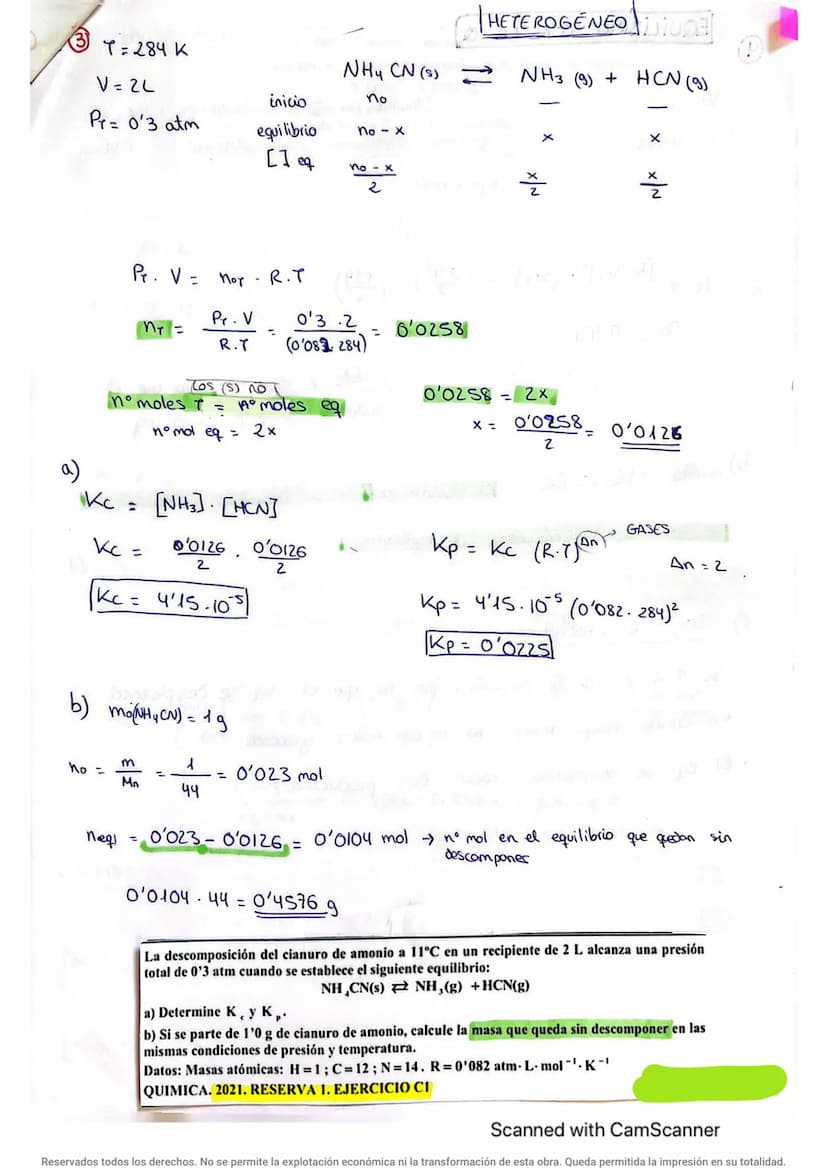 HETEROGÉNEO
③ T = 284 K
V = 2L
PT = 0'3 atm
NH4 CN (s) ⇄ NH3 (g) + HCN (g)
inicio no — —
equilibrio no - x x x
[ ] eq (no - x)/2 x/2 x/2
PT . V = noT . R.T
nT = PT . V / R.T = 0'3 . 2 / (0'082. 284) = 0'0258
Los (s) NO
nº moles T = nº moles eq
nº mol eq = 2x
0'0258 = 2x
x = 0'0258 / 2 = 0'0126
a)
Kc = [NH3] . [HCN]
Kc = 0'0126 / 2 . 0'0126 / 2
Kc = 4'15 . 10⁻⁵
Kp = Kc (R.T)^Δn → GASES
Δn = 2
Kp = 4'15 . 10⁻⁵ (0'082 . 284)²
Kp = 0'0225
b) mo(NH4 CN) = 1 g
no = m / Mn = 1 / 44 = 0'023 mol
neq) = 0'023 - 0'0126 = 0'0104 mol → nº mol en el equilibrio que quedan sin
descomponer
0'0104 . 44 = 0'4576 g
La descomposición del cianuro de amonio a 11ºC en un recipiente de 2 L alcanza una presión
total de 0'3 atm cuando se establece el siguiente equilibrio:
NH₄CN(s) ⇄ NH₃(g) + HCN(g)
a) Determine K c y K p.
b) Si se parte de 1'0 g de cianuro de amonio, calcule la masa que queda sin descomponer en las
mismas condiciones de presión y temperatura.
Datos: Masas atómicas: H = 1 ; C = 12 ; N = 14. R = 0'082 atm· L· mol⁻¹· K⁻¹
QUIMICA. 2021. RESERVA 1. EJERCICIO C1
Scanned with CamScanner
Reservados todos los derechos. No se permite la explotación económica ni la transformación de esta obra. Queda permitida la impresión en su totalidad.